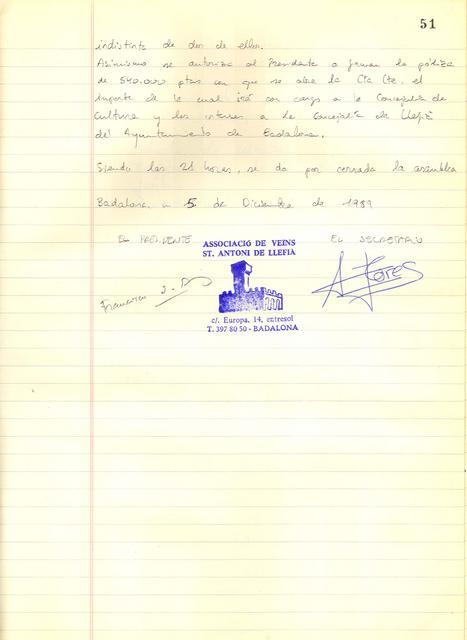 51
indistinta de dos de ellos.
Asimismo se autoriza al Presidente a firmar la póliza
de 540.000 ptas con que se abre la Cta Cte, el
importe de la cual irá con cargo a la Concejalía de
Cultura y los intereses a la Concejalía de Llefià
del Ayuntamiento de Badalona.
Siendo las 21 horas, se da por cerrada la asamblea
Badalona a 5 de Diciembre de 1989
EL PRESIDENTE
EL SECRETARIO
ASSOCIACIÓ DE VEINS
ST. ANTONI DE LLEFIÀ
Francisco
c/. Europa, 14, entresol
T. 397 80 50 - BADALONA